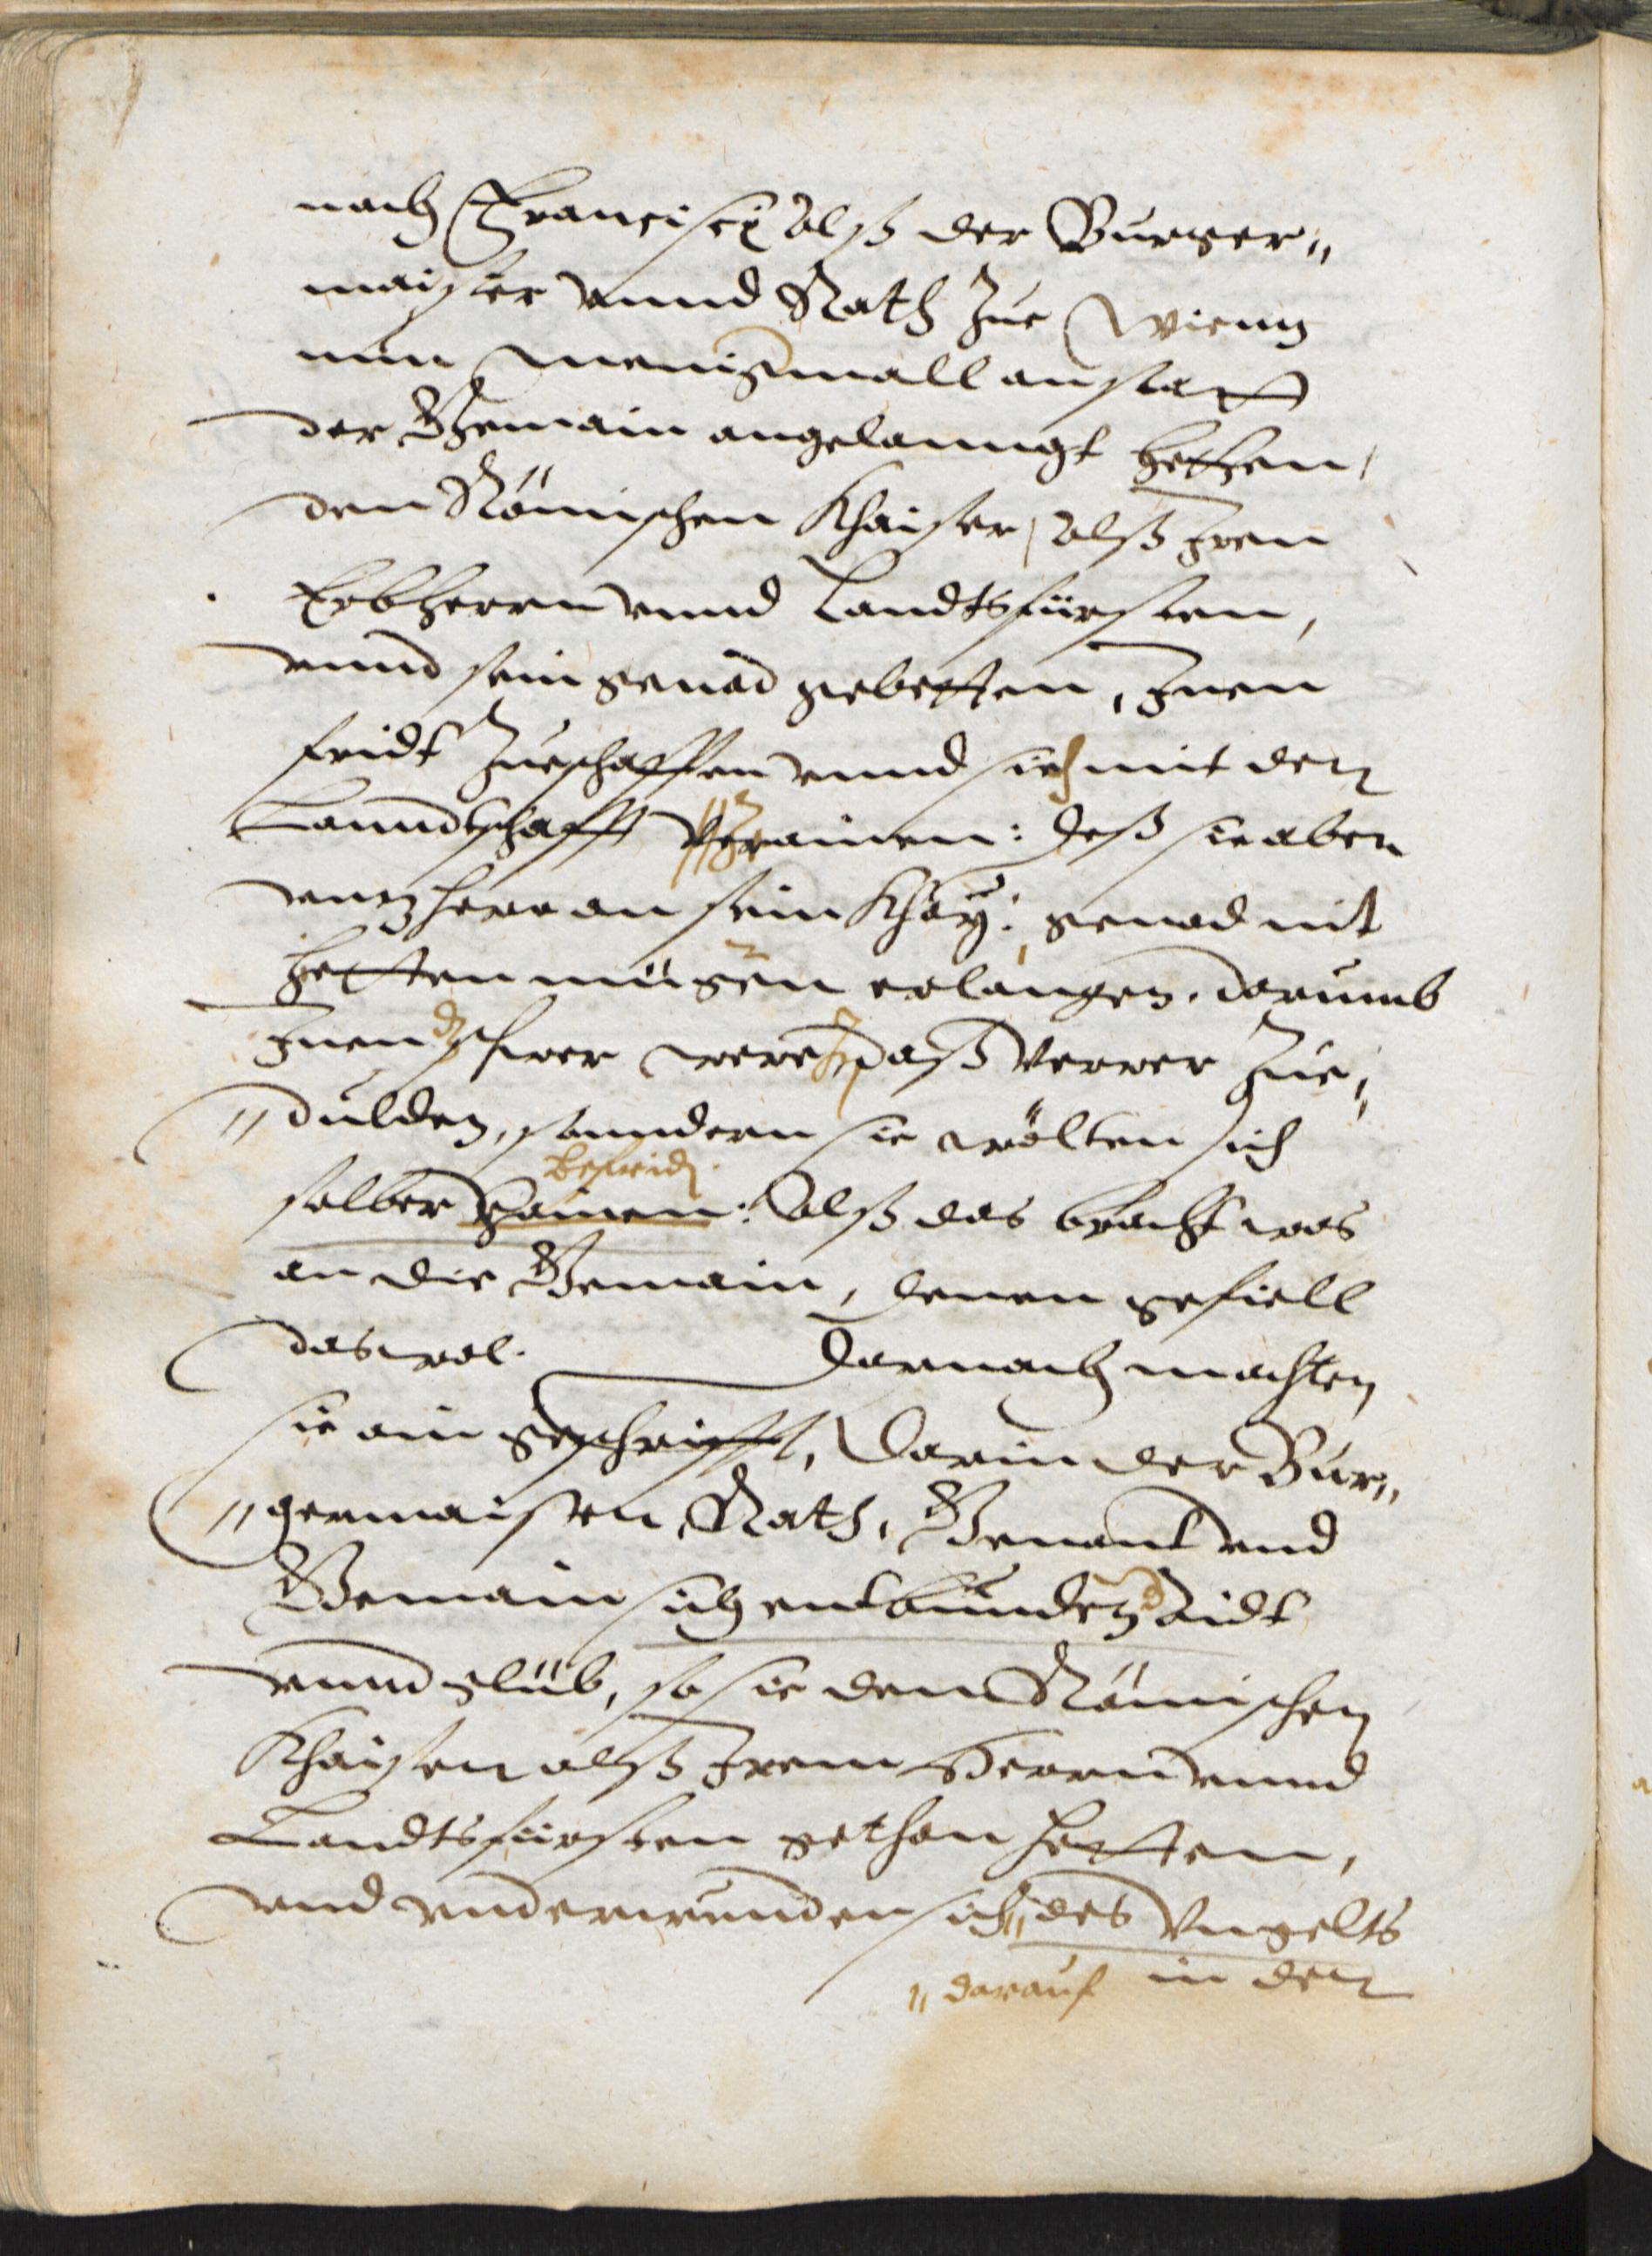 nach Francisci alß der Burger„
maister vnnd Rath Zue Wienn
nun menigmall anstatt
der Gemain angelanngt hetten,
den Römischen Khaiser, alß Iren
Erbherrn vnnd Landtsfürsten,
vnnd sein genad gebetten, Inen
fridt Zueschaffen vnnd sich mit der
Lanndtschafft Verainen: deß sie aber
vntzherr an sein Khay: genad nit
hetten mügen erlangen. darumb
Inen schwer were daß verrer Zue„
„dulden, sonndern sie wölten sich
befrid.
selber : alß das bracht was
an die Gemain, denen gefiell
das wol. Darnach machten
sie ein geschrifft, darin der Bur„
„germaister, Rath, Genant vnd
Gemain sich entbunden aidt
vnnd glüb, so sie dem Römischen
Khaiser alß Irem Herrn vnnd
Landtsfürsten gethan hetten,
vnd vnderwunden sich„ des Vngelts
„ darauf in der